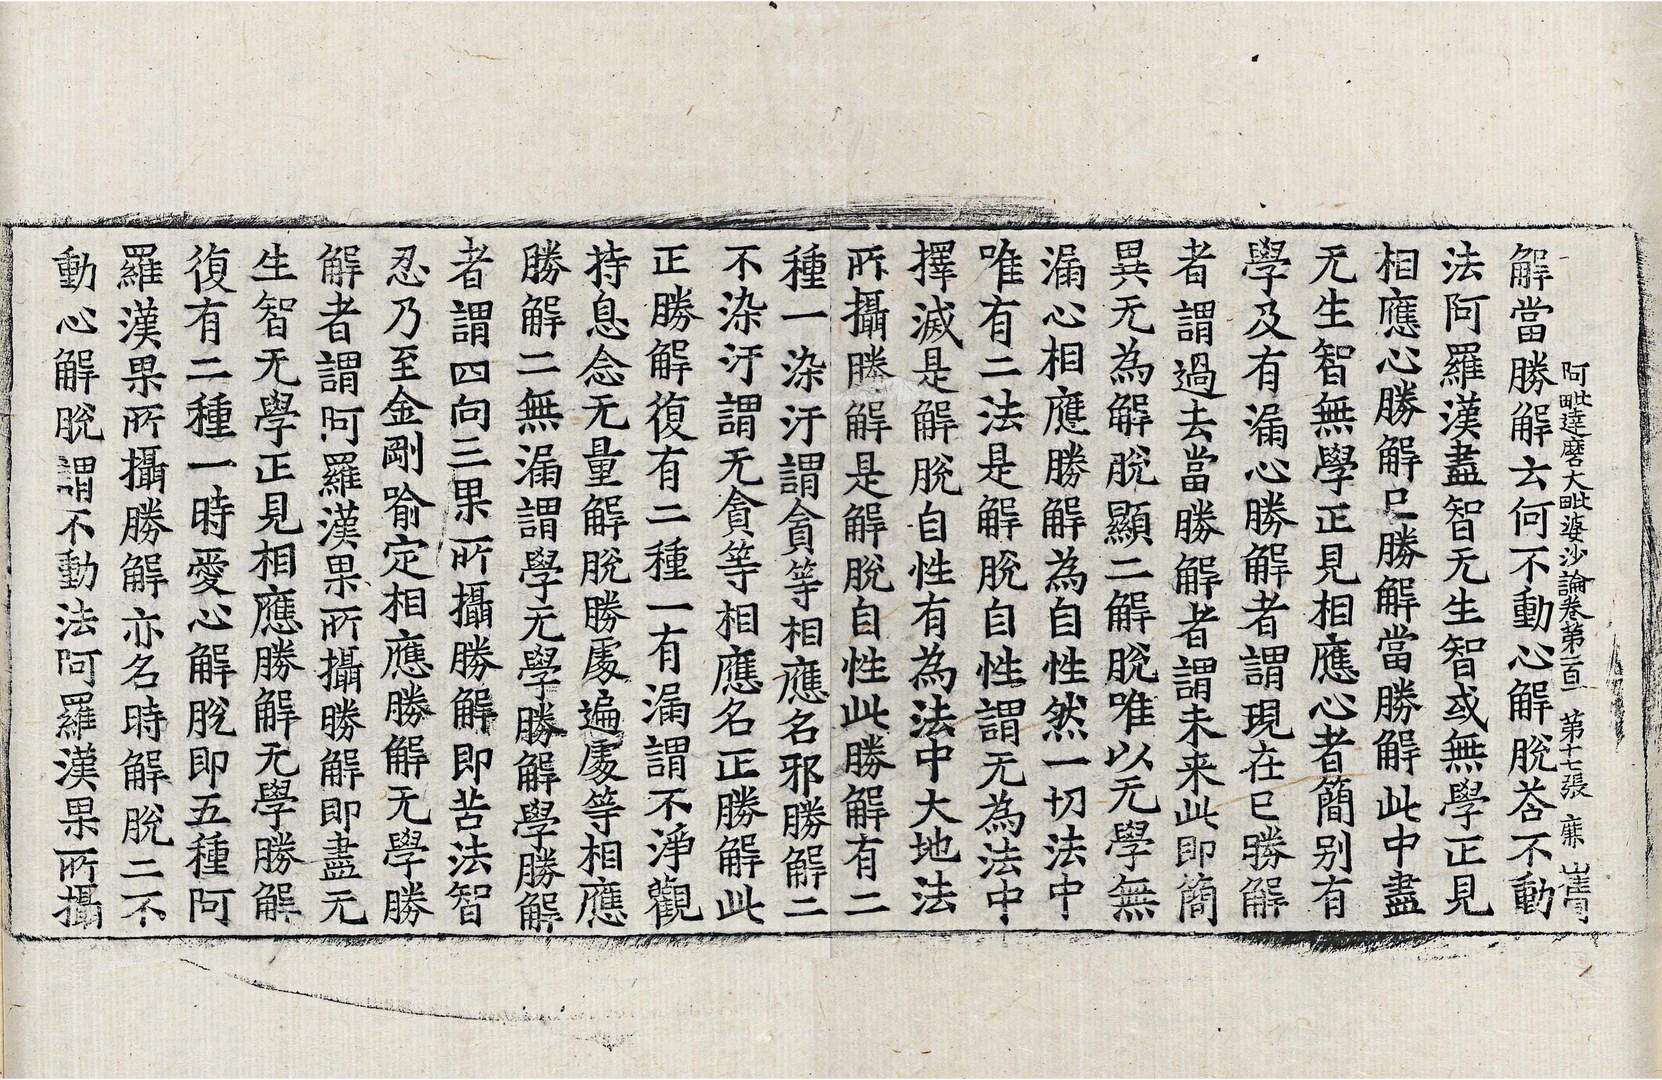 阿毗達磨大毗婆沙論卷第一百一 第十七張 廉
解當勝解云何不動心解脫荅不動
法阿羅漢盡智无生智或無學正見
相應心勝解巳勝解當勝解此中盡
无生智無學正見相應心者簡别有
學及有漏心勝解者謂現在巳勝解
者謂過去當勝解者謂未来此即簡
異无為解脫顯二解脫唯以无學無
漏心相應勝解為自性然一切法中
唯有二法是解脫自性謂无為法中
擇滅是解脫自性有為法中大地法
所攝勝解是解脫自性此勝解有二
種一染汙謂貪等相應名邪勝解二
不染汙謂无貪等相應名正勝解此
正勝解復有二種一有漏謂不淨觀
持息念无量解脫勝處遍處等相應
勝解二無漏謂學无學勝解學勝解
者謂四向三果所攝勝解即苦法智
忍乃至金剛喻定相應勝解无學勝
解者謂阿羅漢果所攝勝解即盡无
生智无學正見相應勝解无學勝解
復有二種一時愛心解脫即五種阿
羅漢果所攝勝解亦名時解脫二不
動心解脫謂不動法阿羅漢果所攝